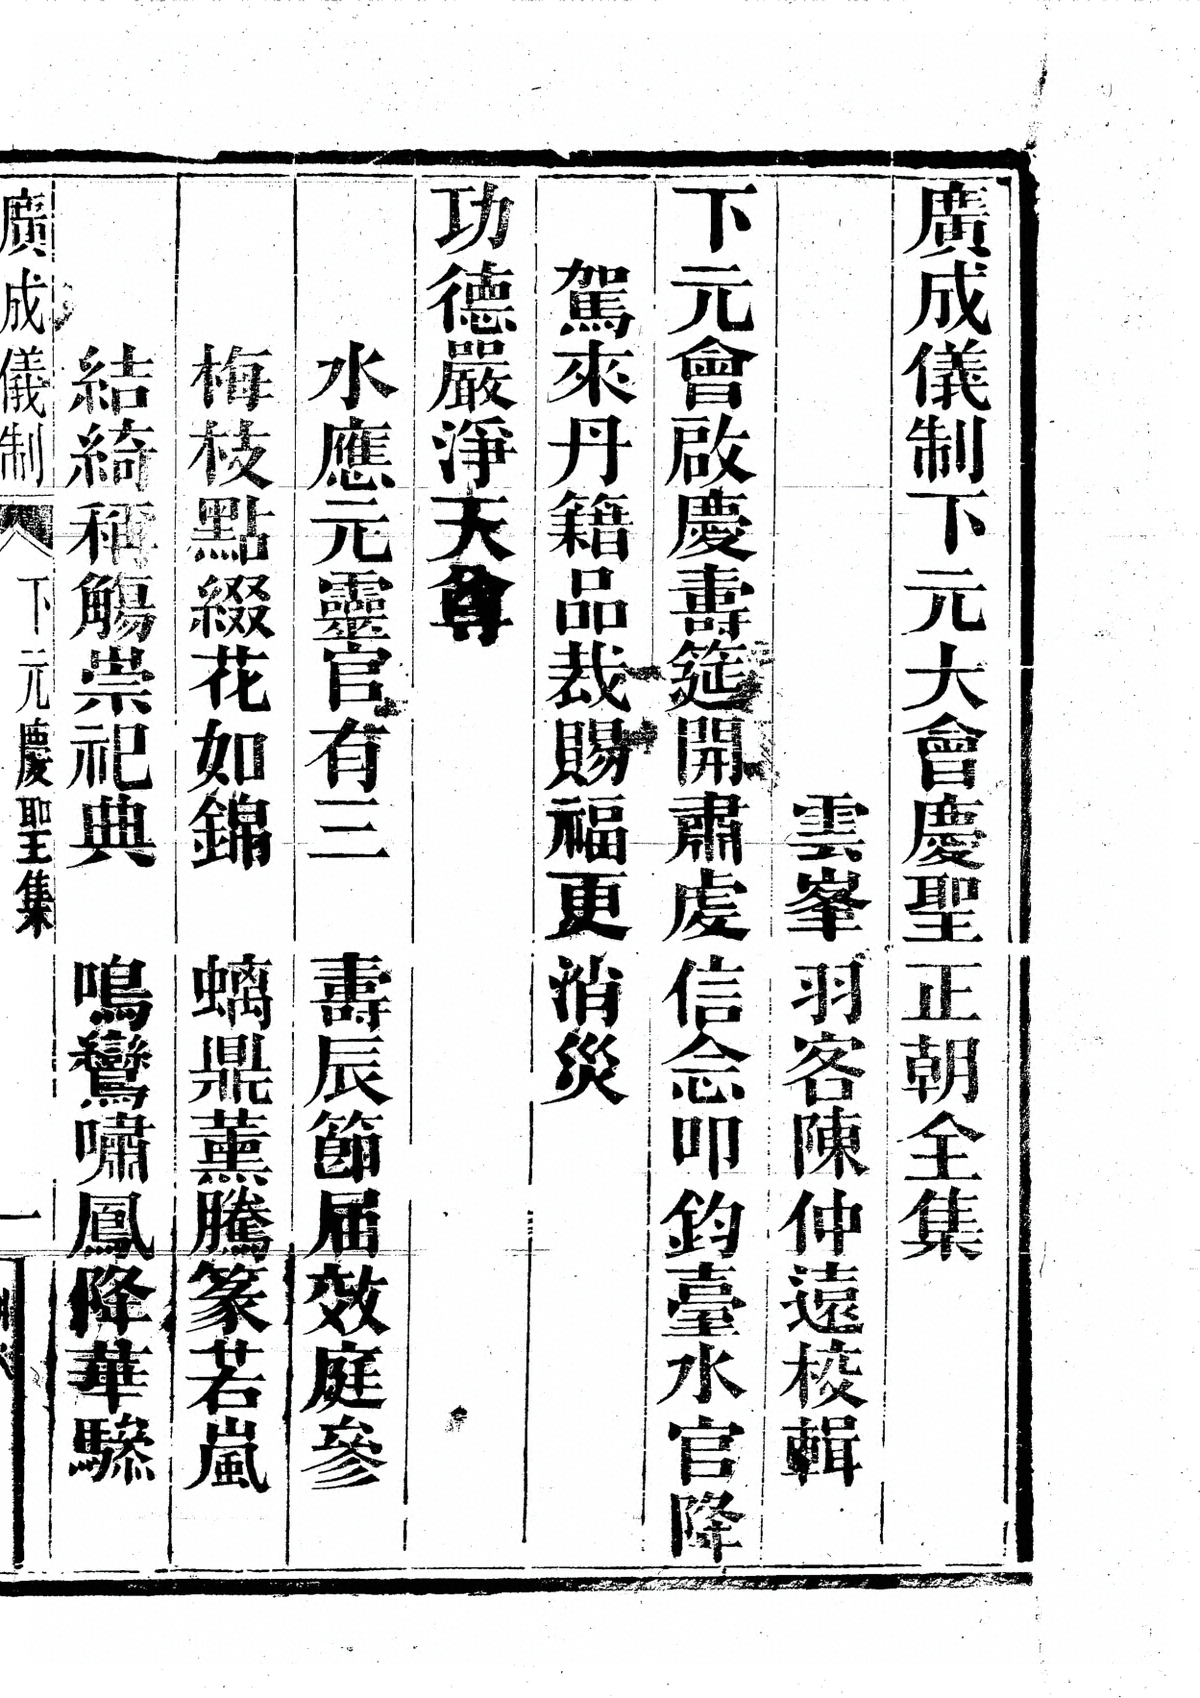 廣成儀制下元大會慶聖正朝全集
雲峯羽客陳仲遠校輯
下元會啟慶壽筵開肅虔信念叩鈞臺水官降
駕來丹籍品裁賜福更消災
功德嚴淨天尊
水應元靈官有三　壽辰節届效庭參
梅枝點綴花如錦　螭鼎薰騰篆若嵐
結綺稱觴崇祀典　鳴鸞嘯鳳降華驂
廣成儀制　下元慶聖集　一